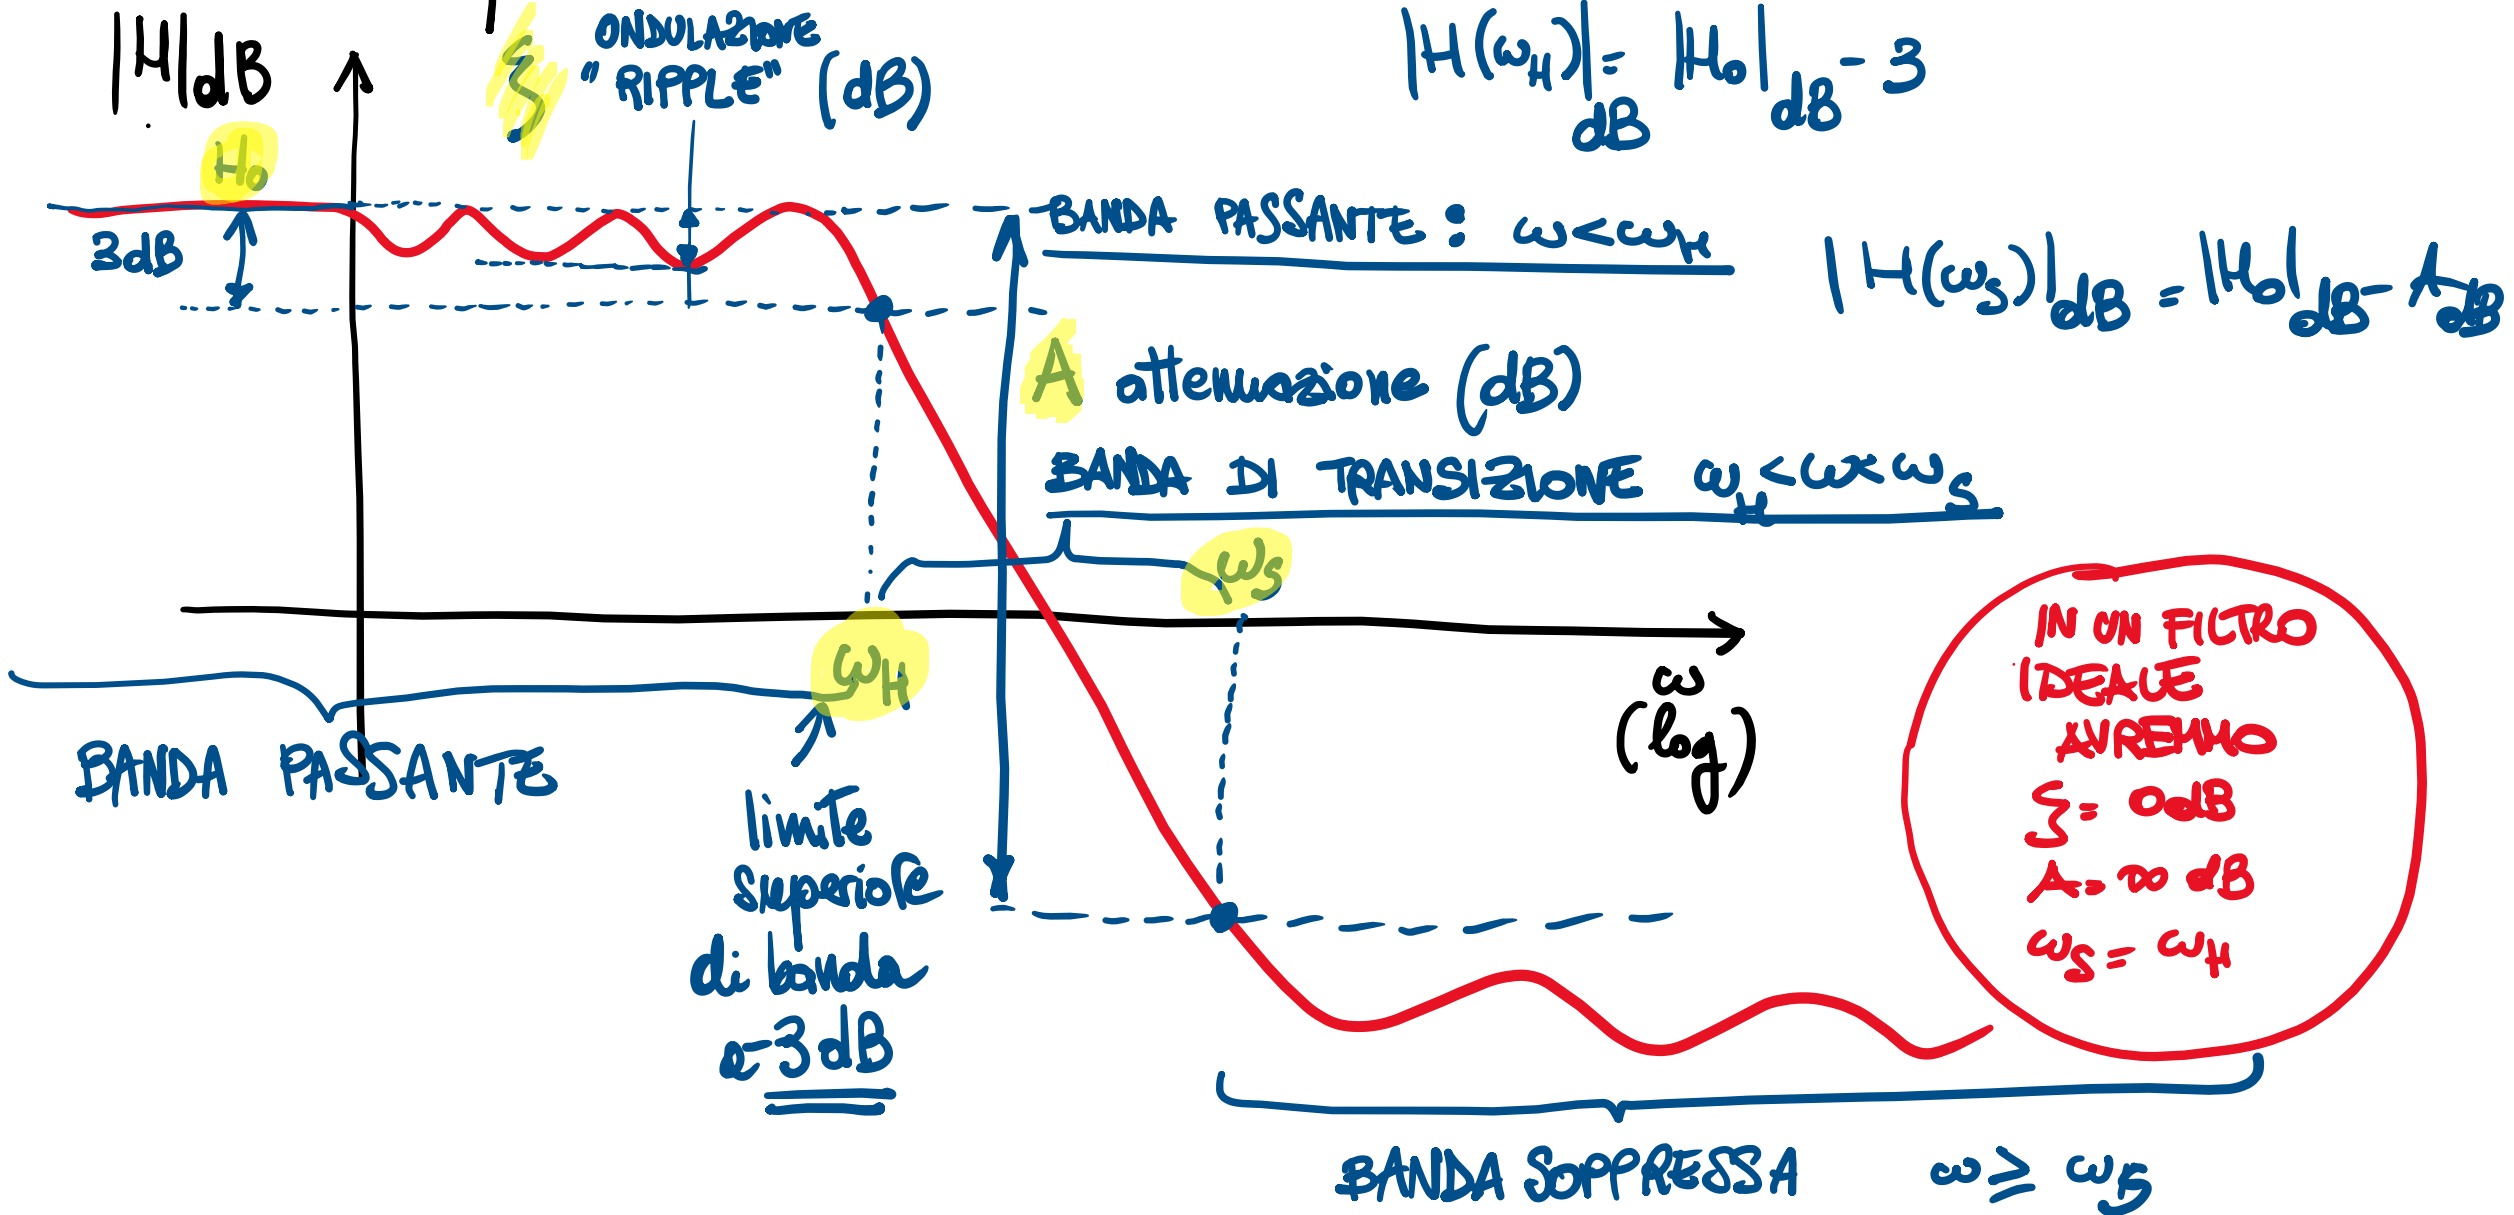 |H|dB
ξ ONDULAZIONE
"RIPPLE" (dB)
|H(ωH)|dB = |H₀|dB - 3
H₀
3dB
BANDA PASSANTE : ω < ωH
|H(ωs)|dB = |H₀|dB - AdB
A attenuazione (dB)
BANDA DI TRANSIZIONE ωH < ω < ωs
ωs
ωH
ω
(log)
BANDA PASSANTE
limite
superiore
di banda
a -3dB
IN UN FILTRO
IDEALE
AVREMO
ξ = 0dB
A = ∞ dB
ωs = ωH
BANDA SOPPRESSA ω ≥ ωs